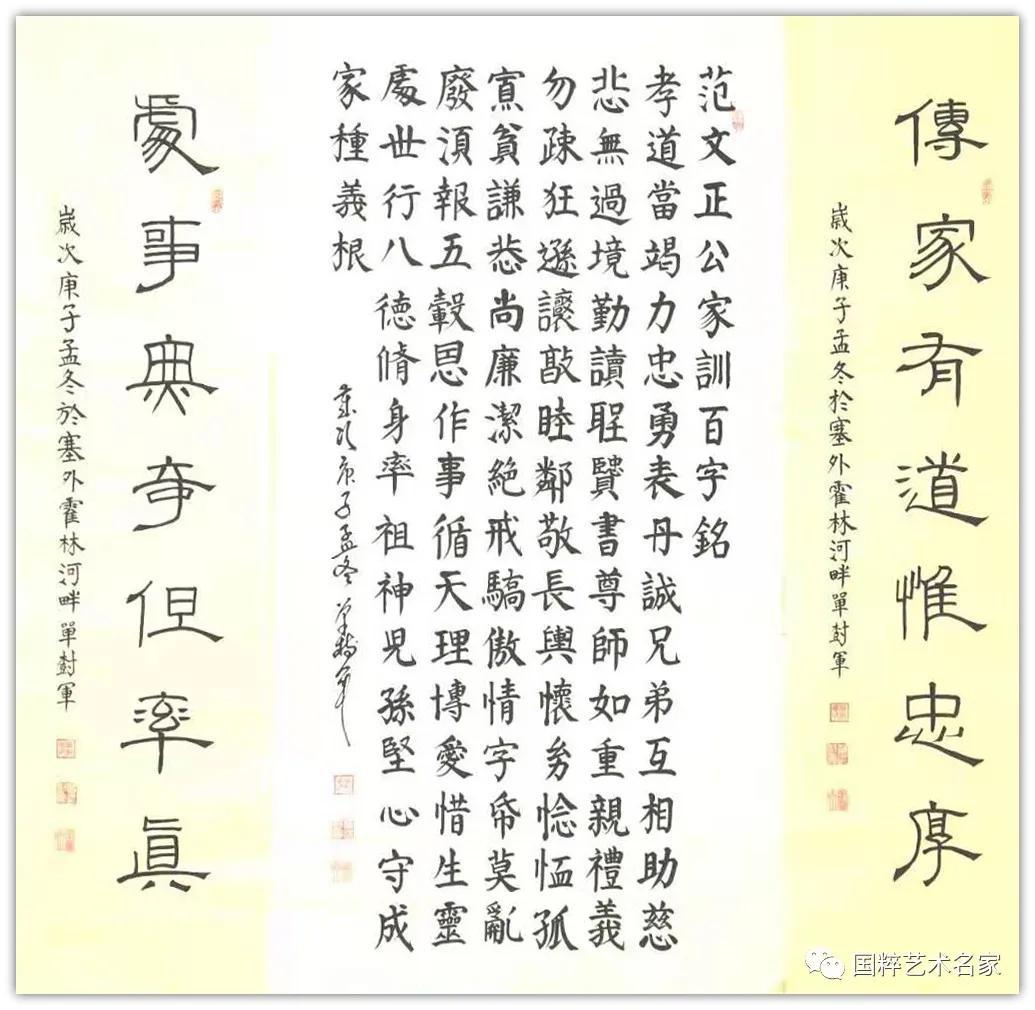 傳家有道惟忠厚
歲次庚子孟冬於塞外霍林河畔單尌軍
范文正公家訓百字銘
孝道當竭力忠勇表丹誠兄弟互相助慈
悲無過境勤讀聖賢書尊師如重親禮義
勿疎狂遜讓敦睦鄰敬長與懷幼惗恤孤
寡貧謙恭尚廉潔絕戒驕傲情字帋莫亂
廢須報五穀恩作事循天理博愛惜生靈
處世行八德脩身率祖神児孫堅心守成
家種義根
歲次庚子孟冬單尌軍
處事無奇但率真
歲次庚子孟冬於塞外霍林河畔單尌軍
国粹艺术名家